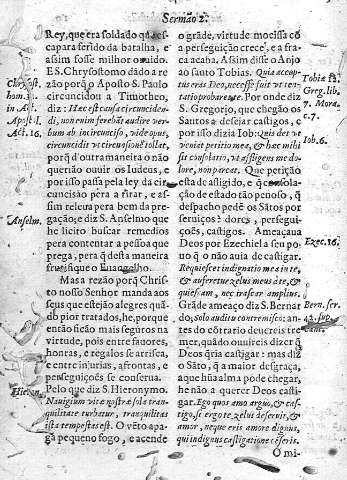 Sermão 2.
Rey, que era soldado q̃ es-
capara ferido da batalha, e
assim fosse milhor ouuido.
E S. Chrysostomo dãdo a re-
zão porq̃ o Aposto S. Paulo
circuncidou a Timotheo,
diz: Hæc est causa circuncidẽ-
di, non enim ferebãt audire ver-
bum ab incircunciso, vide opus,
circuncidit vt circuncisiõ tollat,
porq̃ d'outra maneira o não
querião ouuir os Iudeus, e
por isso passa pela ley da cir-
cuncisão pera a tirar, e as-
sim releua pera bem da pre-
gação; e diz S. Anselmo que
he licito buscar remedios
pera contentar a pessoa que
prega, pera q̃ desta maneira
frutifique o Euangelho.
Mas a rezão porq̃ Chris-
to nosso Senhor manda aos
seus que estejão alegres quã-
do pior tratados, he, porque
então ficão mais seguros na
virtude, pois entre fauores,
honras, e regalos se arrisca,
e entre injurias, afrontas, e
perseguições se conserua.
Pelo que diz S. Hieronymo.
Nauigium vitæ nostræ sola trã-
quilitate turbatur, tranquilitas
ista tempestas est. O vẽto apa-
ga pequeno fogo, e acende
Chrysost.
hom.
in Act.
Apost.
Act. 16.
Anselm.
Hieron.
o grãde, virtude mocissa cõ
a perseguição crece, e a fra-
ca acaba. Assim disse o Anjo
ao santo Tobias. Quia accep-
tus eras Deo, necesse fuit vt ten-
tatio probaret te. Por onde diz
S. Gregorio, que chegão os
Santos a desejar castigos, e
por isso dizia Iob: Quis det vt
veniat petitio mea, & hæc mihi
sit consolatio, vt affligens me do-
lore, non parcat. Que petição
esta de castigado, e q̃ consola-
ção de estado tão penoso, q̃
despacho pedẽ os Sãtos por
seruiços? dores, persegui-
ções, castigos. Ameaçaua
Deos por Ezechiel a seu po-
uo q̃ o não auia de castigar.
Requiescet indignatio mea in te,
& auferetur zelus meus à te, &
quiescam, nec irascar amplius.
Grãde ameaço diz S. Bernar
do; solo auditu contremisco: an-
tes do cõtrario deuereis tre-
mer, quãdo ouuireis dizer q̃
Deos q̃ria castigar: mas diz
o Sãto, q̃ a maior desgraça,
a que hũa alma pòde chegar,
he não a querer Deos casti-
gar. Ego quos amo arguo, & cas-
tigo, se ergo te zelus deseruit, &
amor, neque eris amore dignus,
qui indignus castigatione cẽseris.
O mi-
Tobiæ 12.
Greg. lib.
7. Mora.
c. 7.
Iob. 6.
Ezec. 16.
Bern. ser.
42. sup.
cant.